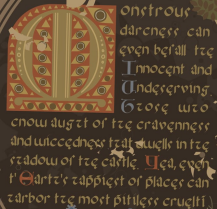 Monstrous
darcness can
even befall tze
Innocent and
Undeserving.
Tzose wzo
cnow augzt of tze cravenness
and wiccedness tzat dwells in tze
szadow of tze castle. Yea, even
i' Oartz's zappiest of places can
zarbor tze most pitiless crueltί